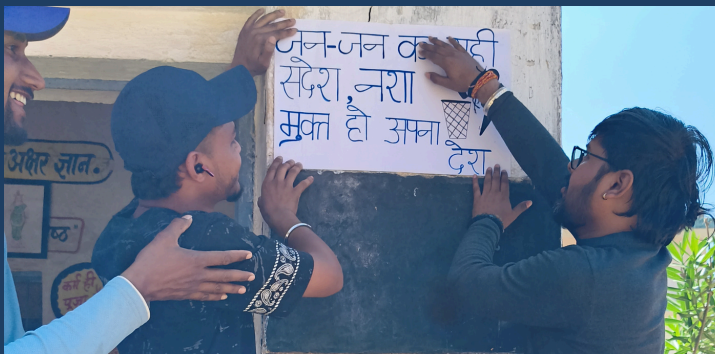 जन-जन का यही
संदेश, नशा
मुक्त हो अपना
देश
अक्षर ज्ञान.
कर्म ही